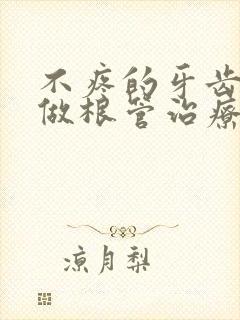 不疼的牙齿
做根管治疗
凉月梨